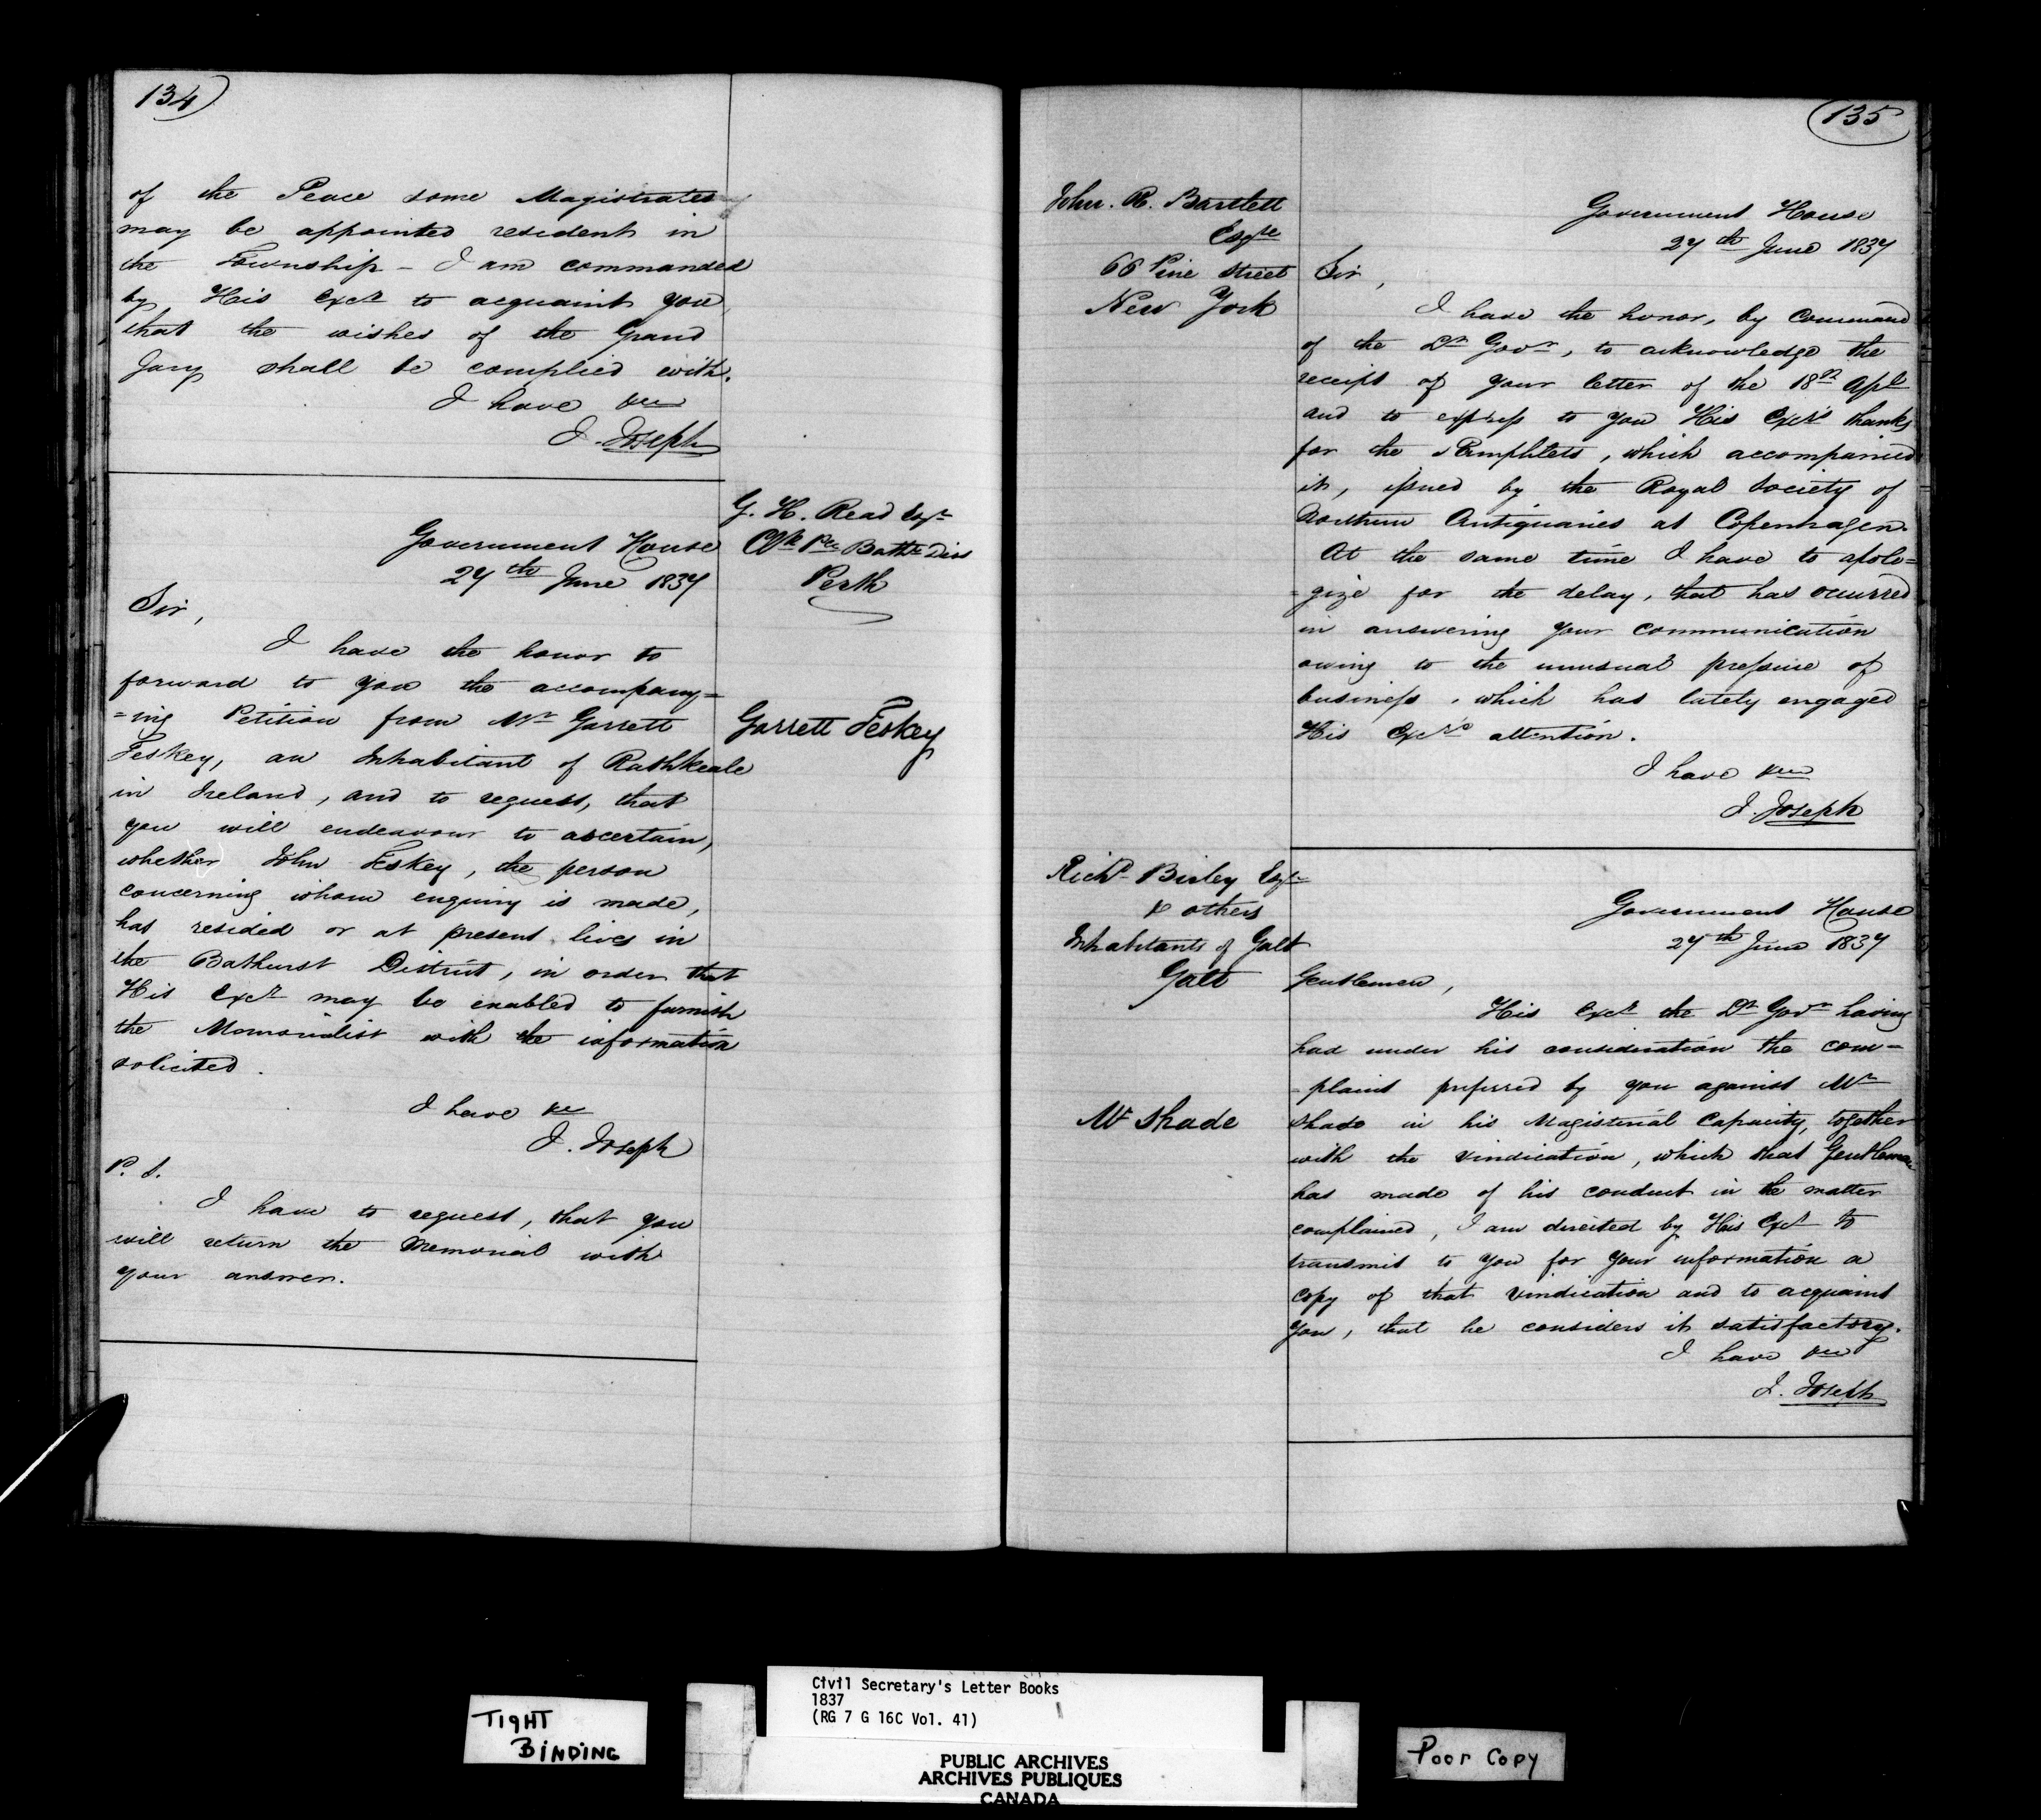 134
of the Peace some Magistrates
may be appointed resident in
the Township - I am commanded
by His Excy to acquaint you
that the wishes of the Grand
Jury shall be complied with.
I have &c
J. Joseph
G. H. Read Esqr
Clk Pce Bathst Dis
Perth
Government House
27th June 1837
Sir,
I have the honor to
forward to you the accompany=
=ing Petition from Mr Garrett
Feskey, an Inhabitant of Rathkeale
in Ireland, and to request, that
you will endeavour to ascertain,
whether John Feskey, the person
concerning whom enquiry is made,
has resided or at present lives in
the Bathurst District, in order that
His Excy may be enabled to furnish
the Memorialist with the information
solicited.
I have &c
J. Joseph
P. S.
I have to request, that you
will return the Memorial with
your answer.
Garrett Feskey
135
John. R. Bartlett
Esqre
66 Pine Street
New York
Government House
27th June 1837
Sir,
I have the honor, by Command
of the Lt Govr, to acknowledge the
receipt of your letter of the 18th Apl
and to express to you His Excy's thanks
for the Pamphlets, which accompanied
it, issued by the Royal Society of
Northern Antiquaries at Copenhagen.
At the same time I have to apolo=
=gize for the delay, that has occurred
in answering your communication
owing to the unusual pressure of
business, which has lately engaged
His Excy's attention.
I have &c
J. Joseph
Richd Birley Esqr
& others
Inhabitants of Galt
Galt
Government House
27th June 1837
Gentlemen,
His Excy the Lt Govr having
had under his consideration the com=
=plaint preferred by you against Mr
Shade in his Magisterial Capacity, together
with the vindication, which that Gentleman
has made of his conduct in the matter
complained, I am directed by His Excy to
transmit to you for your information a
copy of that vindication and to acquaint
you, that he considers it satisfactory.
I have &c
J. Joseph
Mr Shade
TIGHT
BINDING
Civil Secretary's Letter Books
1837
(RG 7 G 16C Vol. 41)
PUBLIC ARCHIVES
ARCHIVES PUBLIQUES
CANADA
Poor Copy